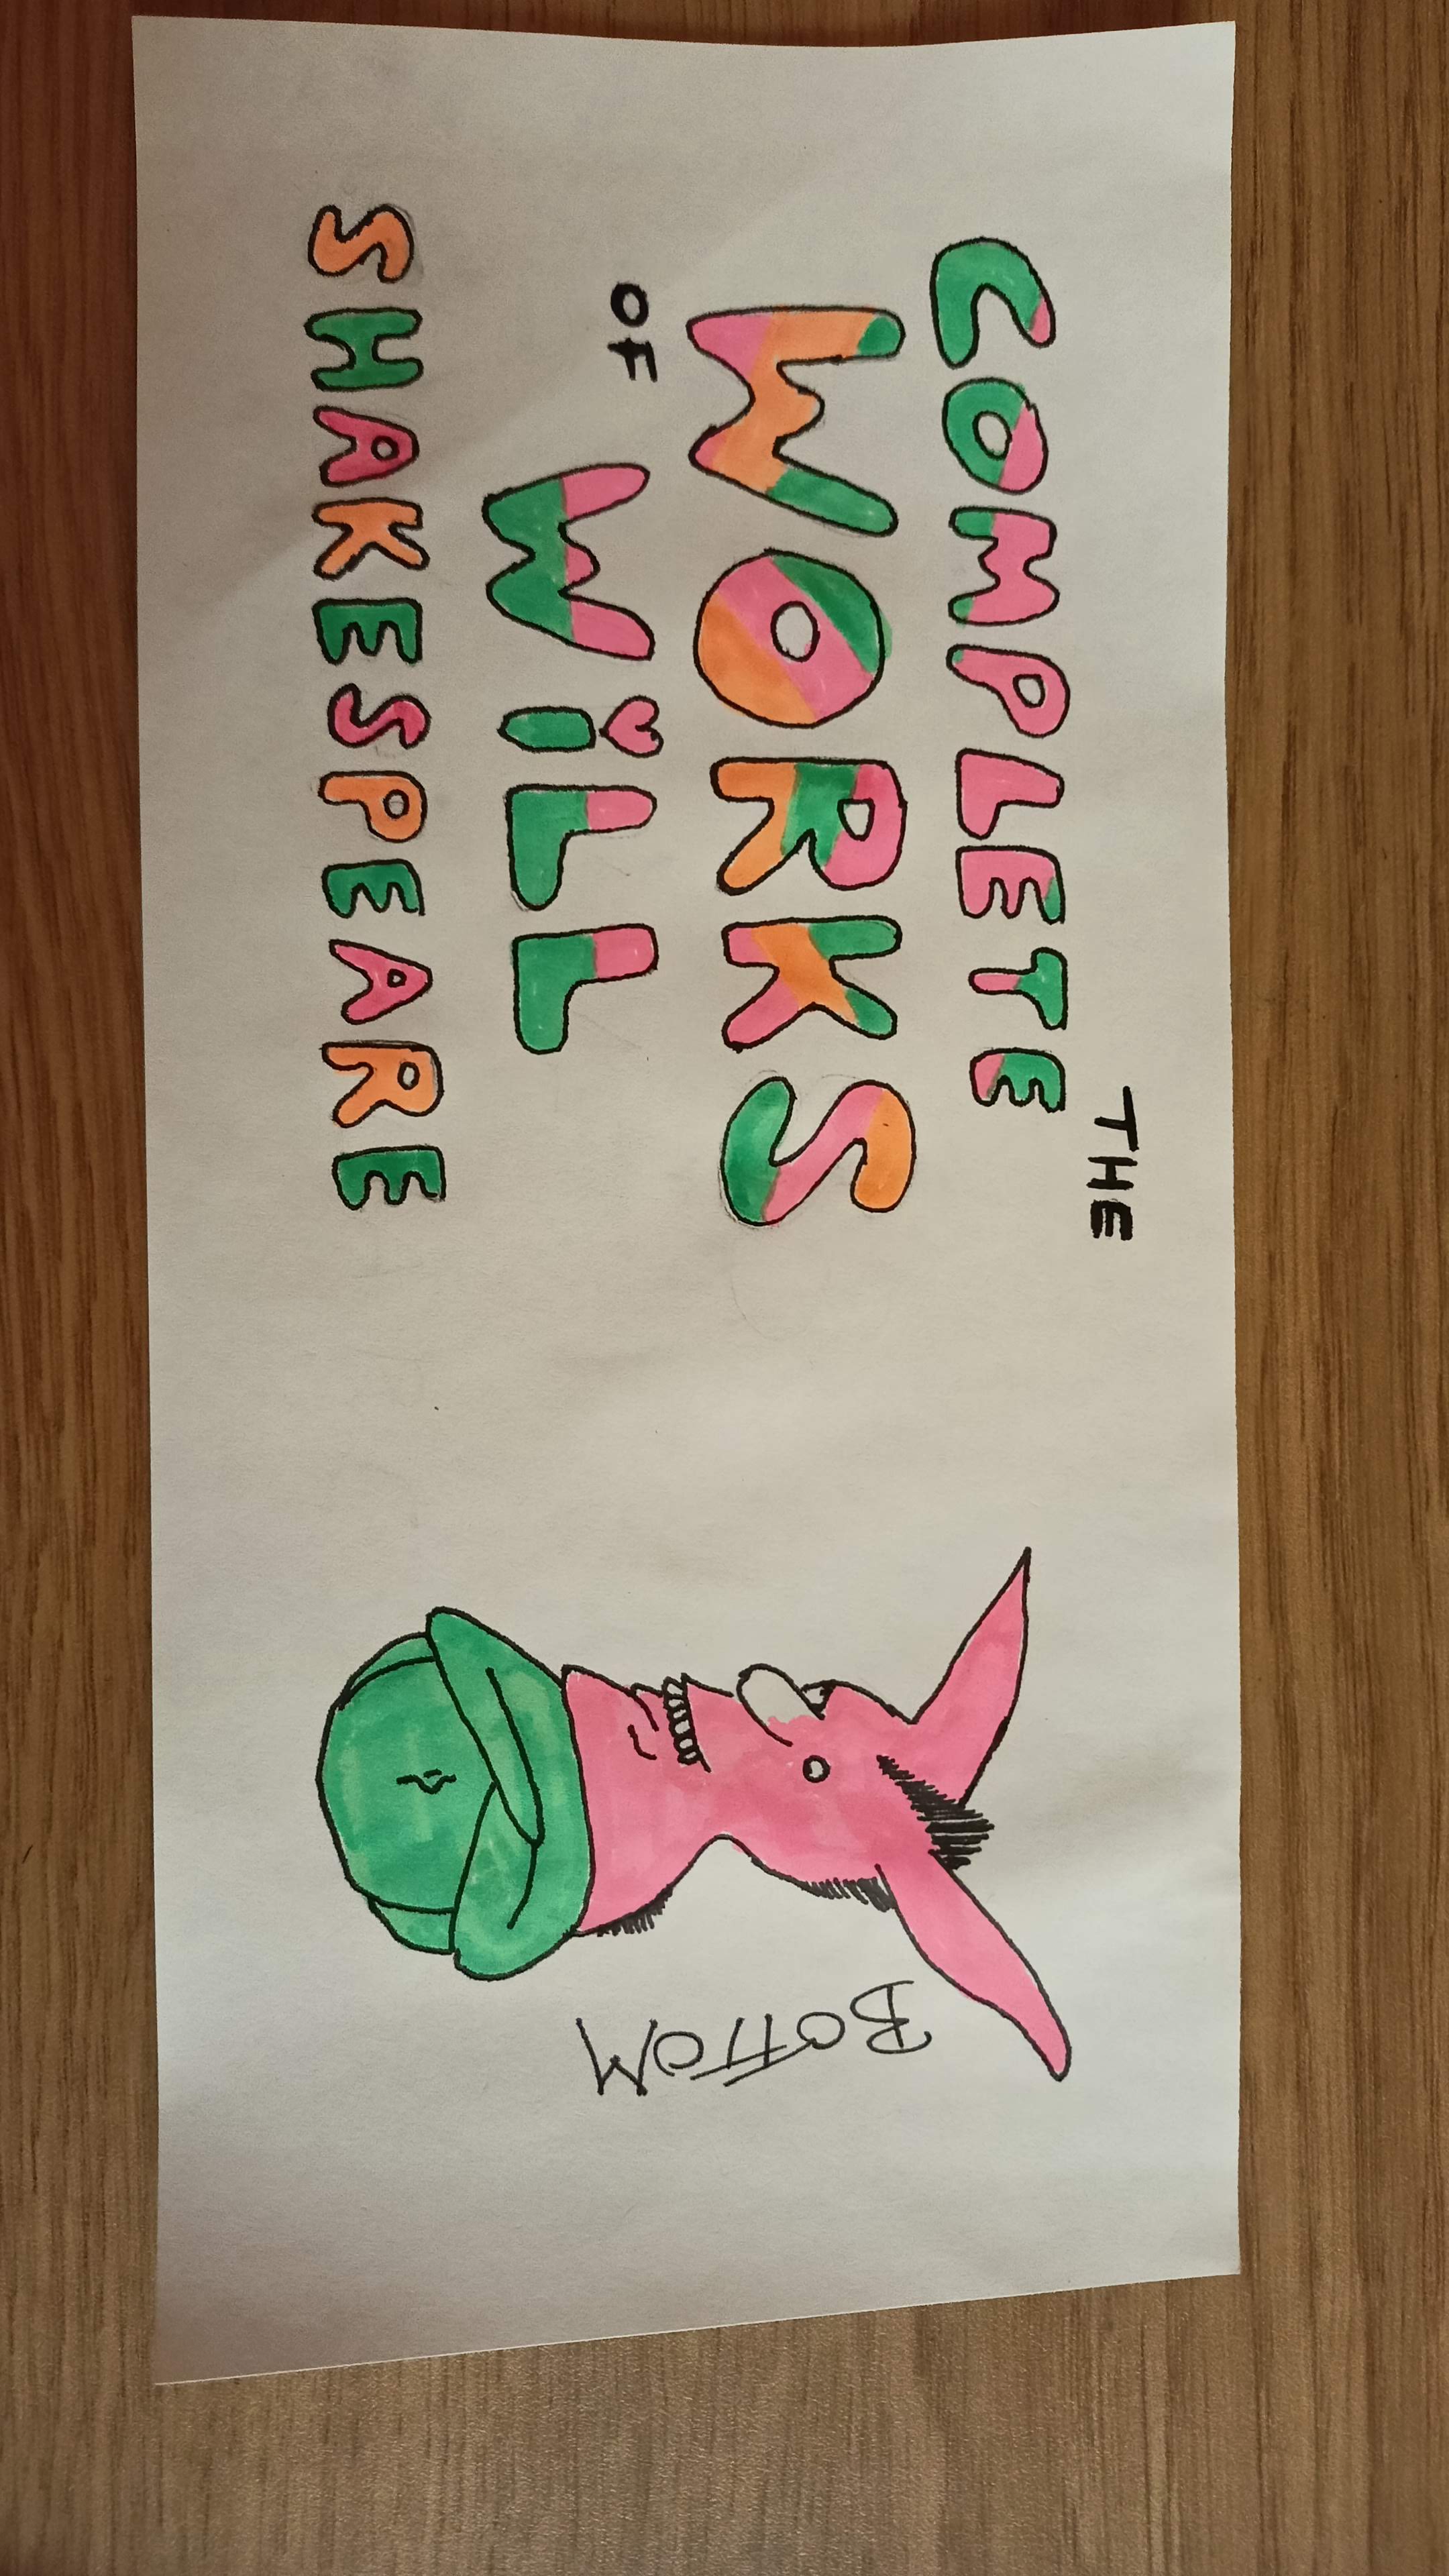 THE
COMPLETE
WORKS
OF
WiLL
SHAKESPEARE
BOTTOM